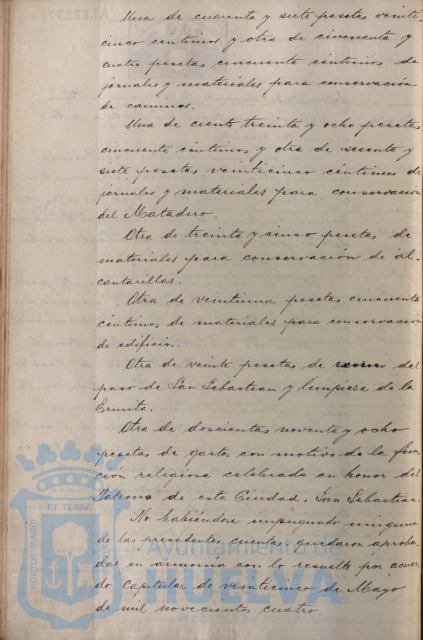 Una de cuarenta y siete pesetas veinte
cinco céntimos y otra de cincuenta y
cuatro pesetas cincuenta céntimos de
jornales y materiales para conservación
de caminos.
Una de ciento treinta y ocho pesetas
cincuenta céntimos y otra de sesenta y
siete pesetas veinticinco céntimos de
jornales y materiales para conservación
del Matadero.
Otra de treinta y cinco pesetas de
materiales para conservación de al-
cantarillas.
Otra de veintiuna pesetas cincuenta
céntimos de materiales para conservación
de edificios.
Otra de veinte pesetas de exorno del
paso de San Sebastian y limpieza de la
Ermita.
Otra de doscientas noventa y ocho
pesetas de gastos con motivo de la fun-
cion religiosa celebrada en honor del
Patrono de este Ciudad, San Sebastian.
No habiéndose impugnado ninguna
de las precedentes cuentas quedaron aproba-
das en armonia con lo resuelto por acuer-
do capitular de veinticinco de Mayo
de mil novecientos cuatro.
Ayuntamiento de
HUELVA
ET TERRÆ
PORTUS MARIS